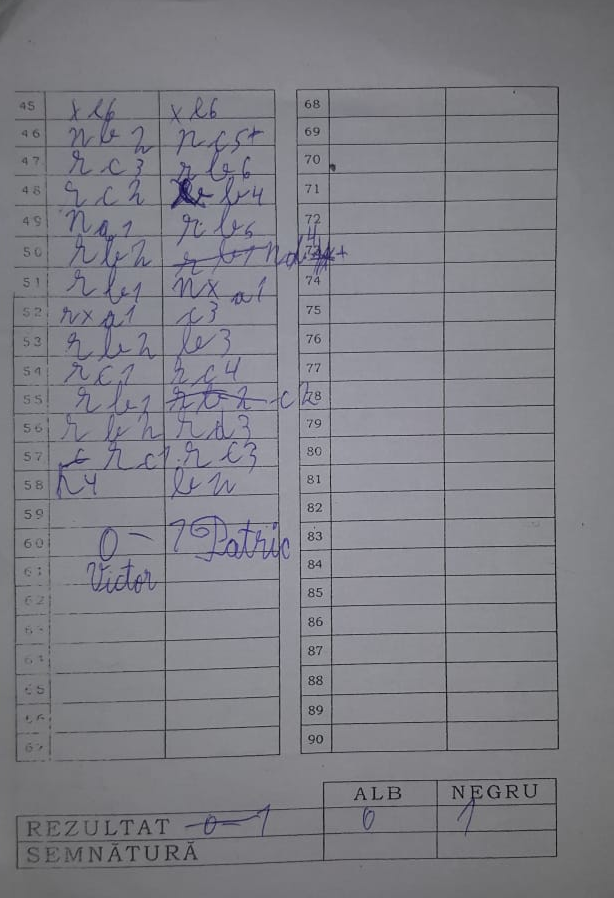 45 xe6 xe6
46 nb2 nc5+
47 rc3 rb6
48 rc2 b4
49 na1 rb5
50 rb2 nd4+
51 rb1 nxa1
52 rxa1 c3
53 rb2 b3
54 rc1 rc4
55 rb2 c2
56 rb2 rd3
57 rc1 rc3
58 h4 b2
59
60 0-1 Patric
61 Victor
62
63
64
65
66
67
68
69
70
71
72
74
75
76
77
78
79
80
81
82
83
84
85
86
87
88
89
90
ALB NEGRU
REZULTAT 0-1 0 1
SEMNĂTURĂ